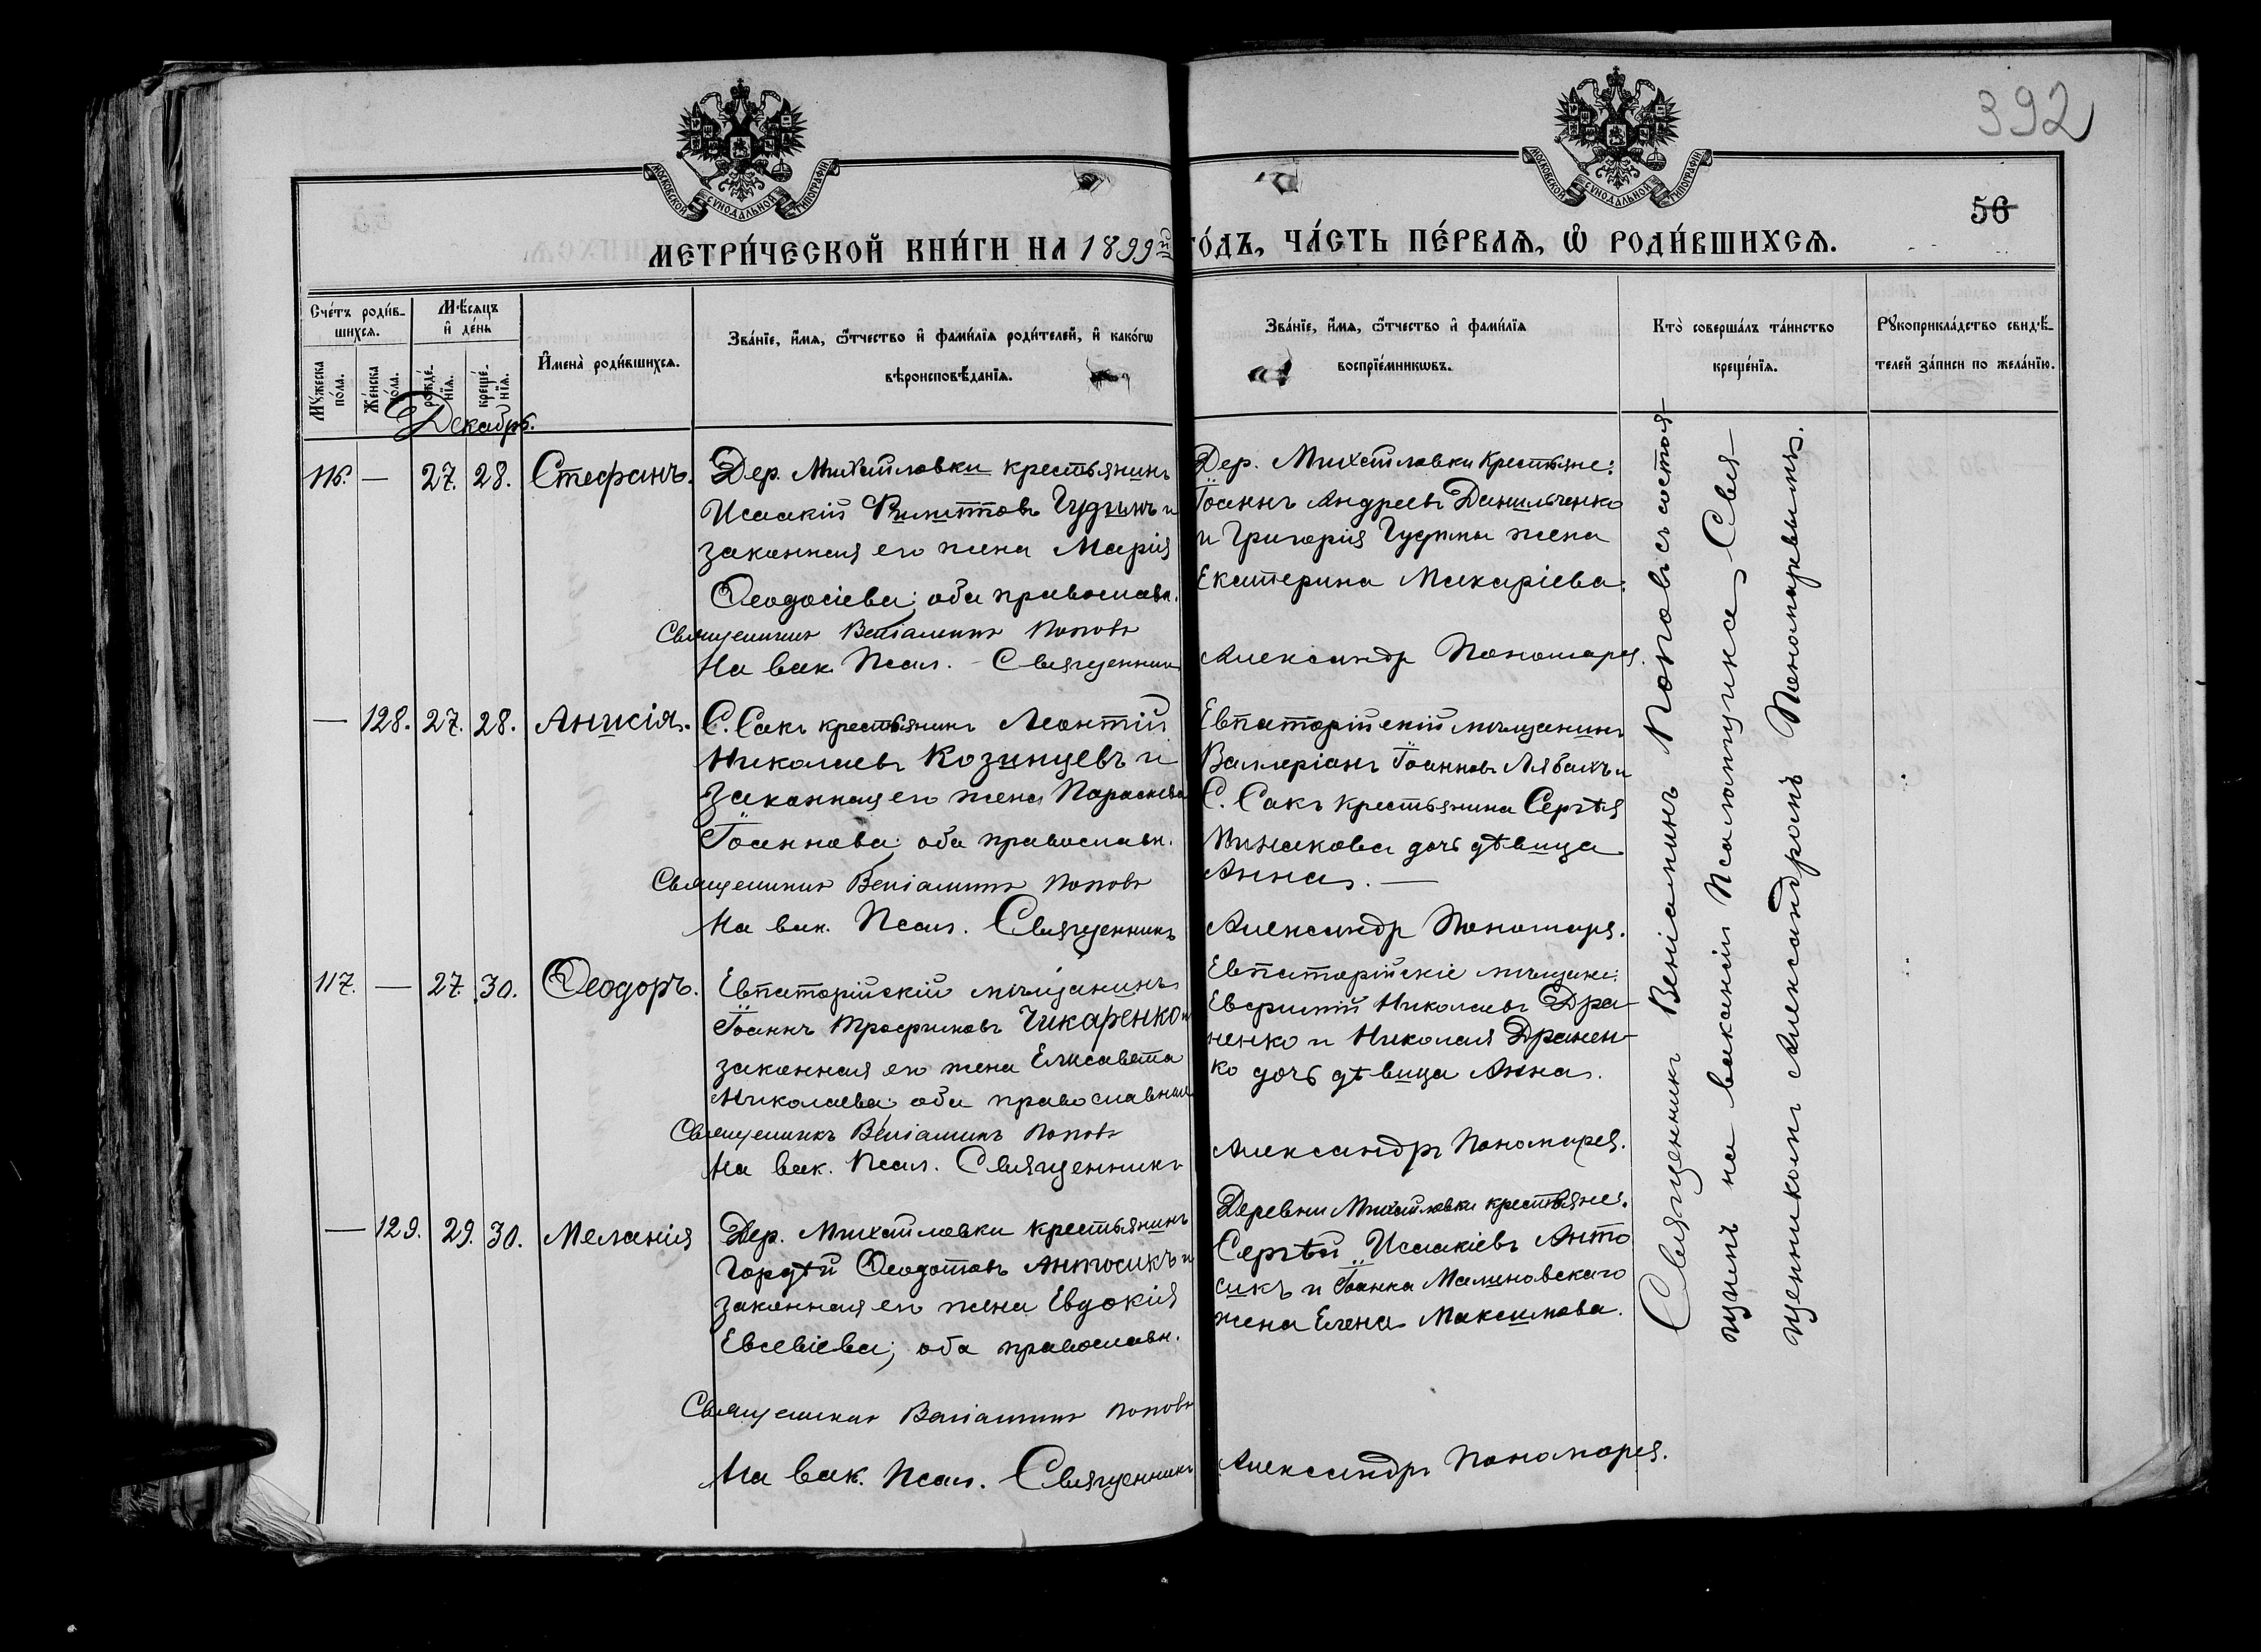 392
56
МОСКОВСКОЙ СУНОДАЛЬНОЙ ТИПОГРАФІИ
МОСКОВСКОЙ СУНОДАЛЬНОЙ ТИПОГРАФІИ
МЕТРИ́ЧЕСКОЙ КНИ́ГИ НА 1899й ГО́ДЪ, ЧА́СТЬ ПЕ́РВАѦ, Ѽ РОДИ́ВШИХСѦ.
Сче́тъ роди́в-
шихсѧ.
Мꙋ́жеска по́ла.
Же́нска по́ла.
Мѣ́сѧцъ
и҆ де́нь
рожде́-
нїѧ.
креще́-
нїѧ.
И҆мена̀ роди́вшихсѧ.
Зва́нїе, и҆́мѧ, ѻ҆́тчество и҆ фами́лїѧ роди́телей, и҆ како́гѡ
вѣроисповѣ́данїѧ.
Зва́нїе, и҆́мѧ, ѻ҆́тчество и҆ фами́лїѧ
воспрїе́мникѡвъ.
Кто̀ соверша́лъ та́инство
креще́нїѧ.
Рꙋкоприкла́дство свидѣ́-
телей за́писи по жела́нїю.
Декабрь.
116. — 27. 28. Стефанъ.
Дер. Михайловки крестьянинъ
Исаакій Филиппов Гудимъ и
законная его жена Марія
Ѳеодосіева; оба православн.
Священникъ Веніаминъ Поповъ
На вак. Псал. Священник
Дер. Михайловки крестьяне:
Іоаннъ Андреевъ Данильченко
и Григорія Гудимы жена
Екатерина Макаріева.
Александр Пономарев.
— 128. 27. 28. Анисія.
С. Сакъ крестьянинъ Леонтій
Николаевъ Козинцевъ и
законная его жена Параскева
Іоаннова; оба православн.
Священникъ Веніаминъ Поповъ
На вак. Псал. Священникъ
Евпаторійскій мѣщанинъ
Валеріанъ Іоанновъ Лябахъ и
С. Сакъ крестьянина Сергѣя
Минакова дочь дѣвица
Анна. —
Александр Пономарев.
117. — 27. 30. Ѳеодоръ.
Евпаторійскій мѣщанинъ
Іоаннъ Трофимовъ Чикаренко и
законная его жена Елисавета
Николаева; оба православная
Священникъ Веніаминъ Поповъ
На вак. Псал. Священникъ
Евпаторійскіе мѣщане:
Евфимій Николаевъ Дра-
ненко и Николая Дранен-
ко дочь дѣвица Анна.
Александръ Пономарев.
— 129. 29. 30. Меланія
Дер. Михайловки крестьянинъ
Гордѣй Ѳеодотовъ Антосикъ и
законная его жена Евдокія
Евсевіева; оба православн.
Священникъ Веніаминъ Поповъ
На вак. Псал. Священникъ
Деревни Михайловки крестьяне:
Сергѣй Исаакіевъ Анто
сикъ и Іоанна Малиновскаго
жена Елена Максимова.
Александръ Пономарев.
Священникъ Веніаминъ Поповъ съ состоя-
щимъ на вакансіи Псаломщика Свя-
щенникомъ Александромъ Пономаревымъ.